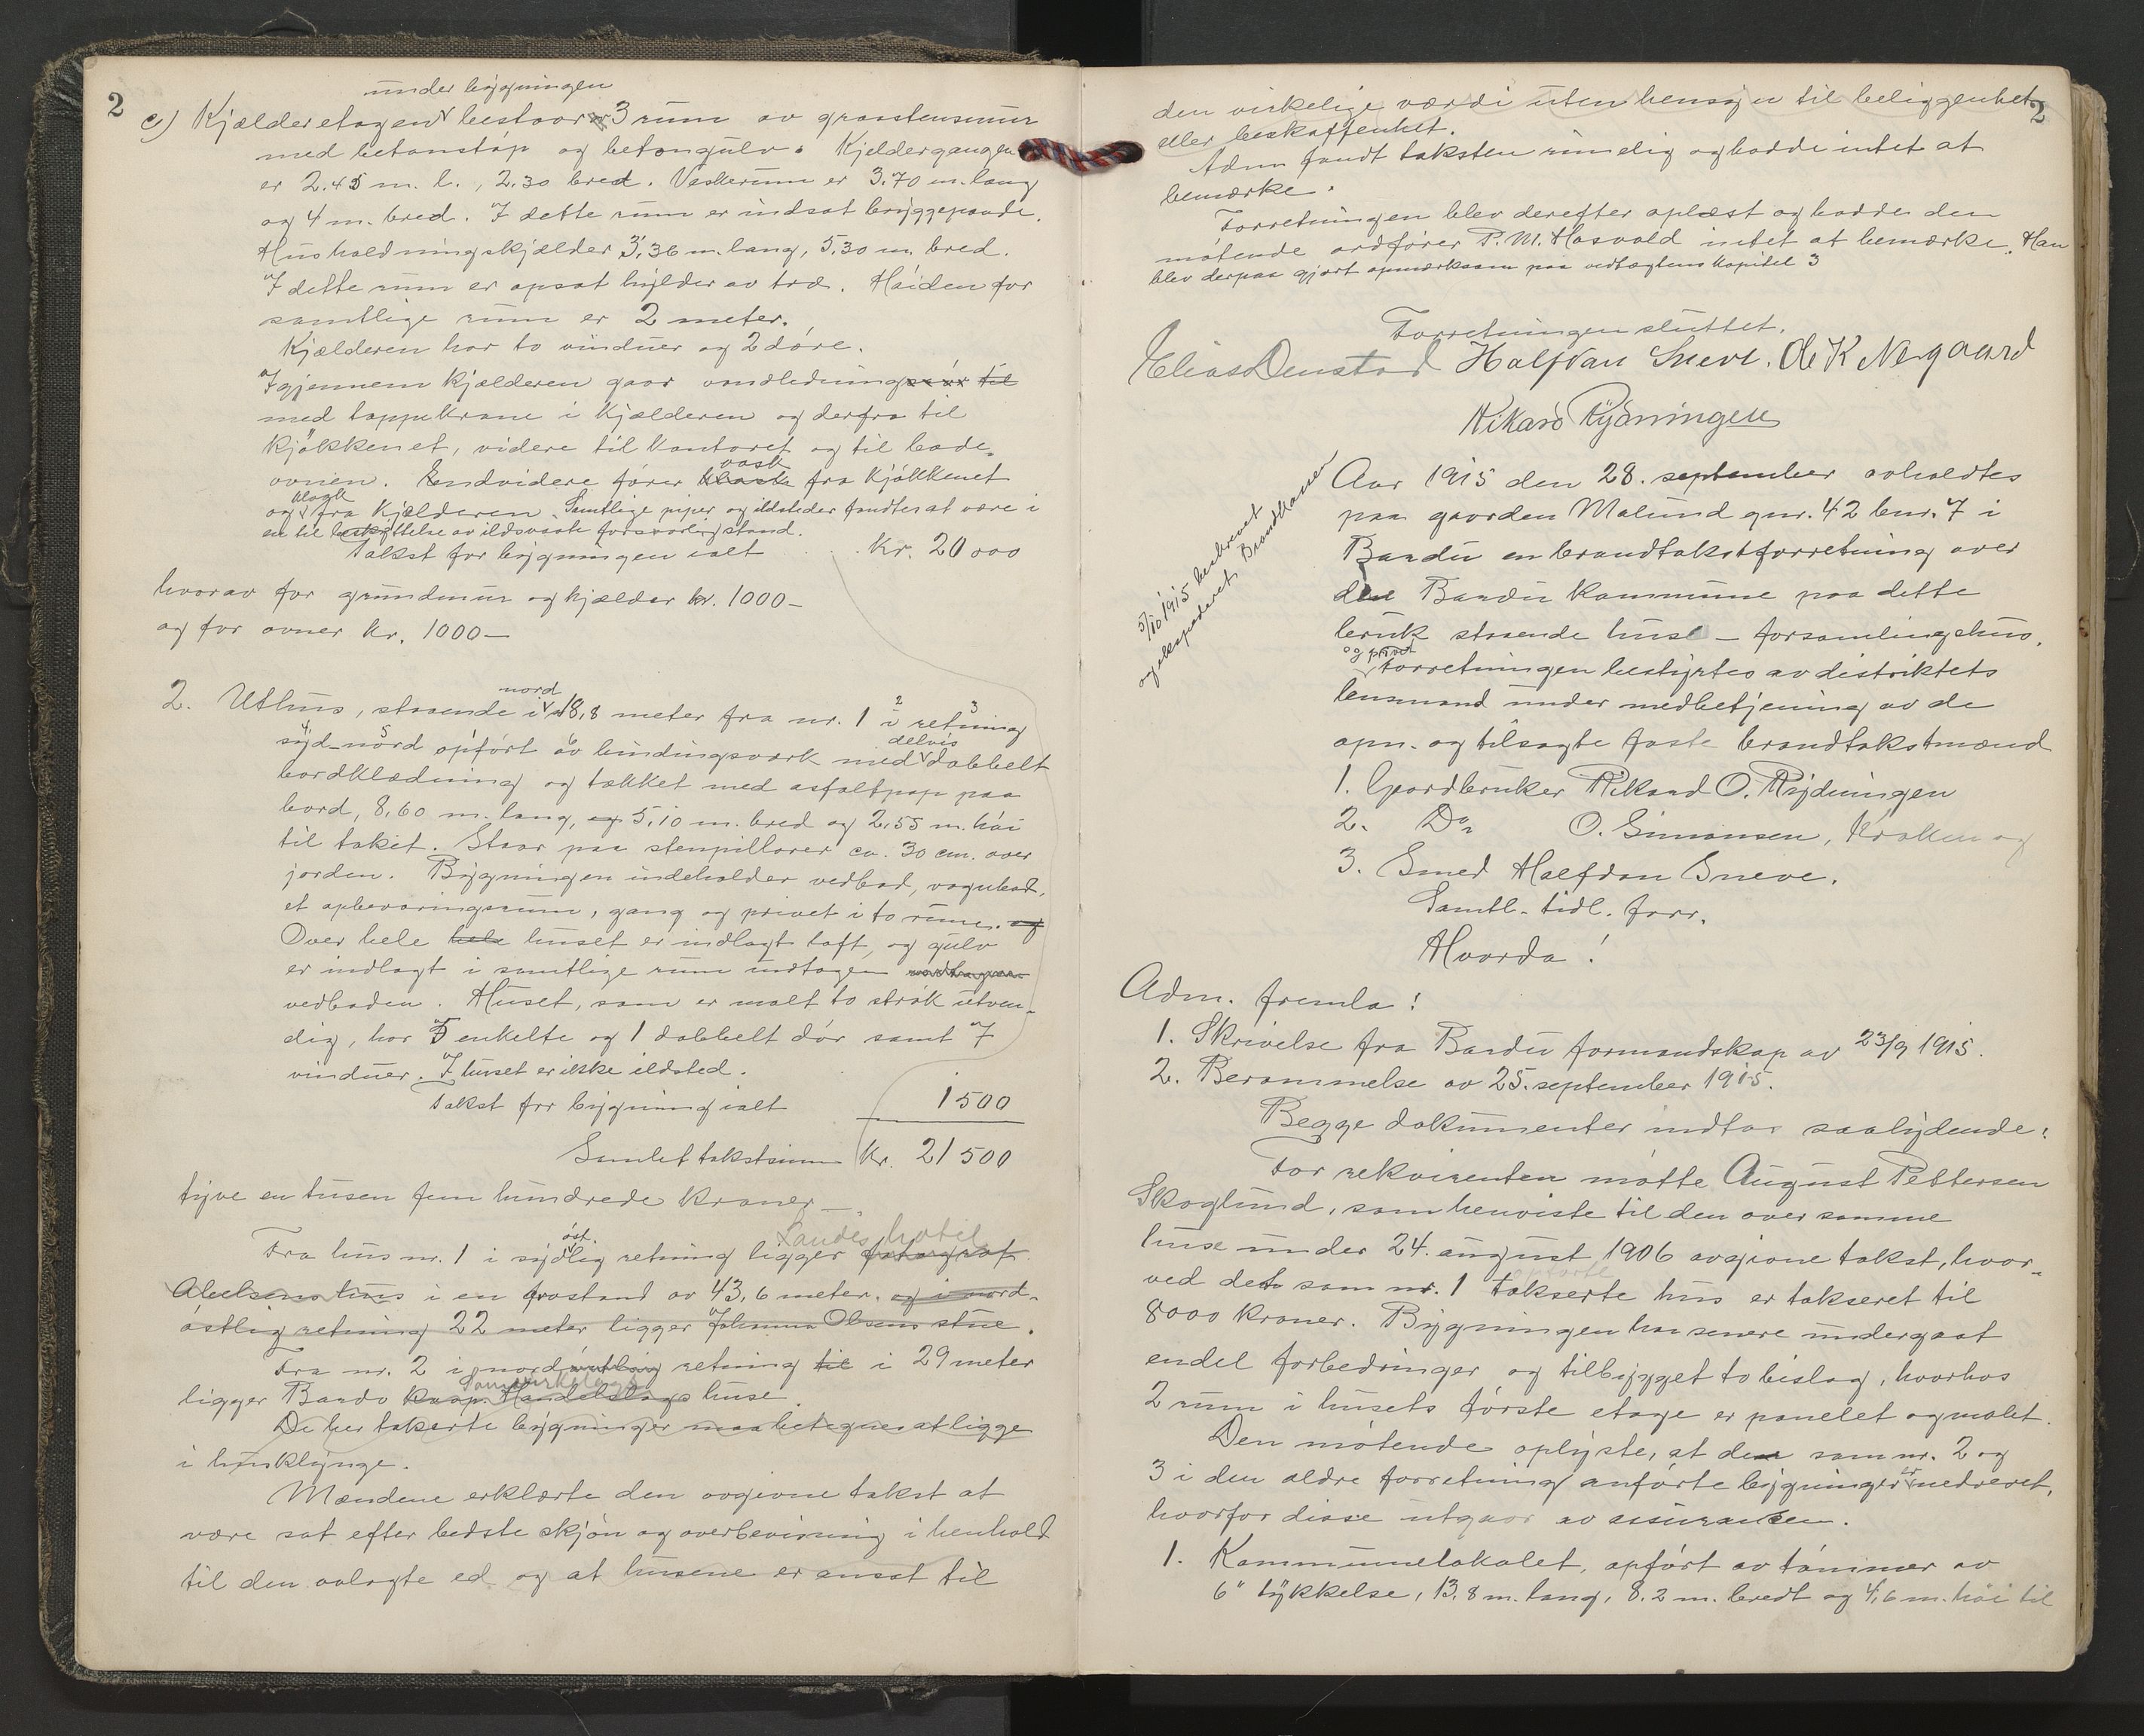 2
under bygningen
c) Kjælderetagen bestaar 3 rum av graastensmur
med betonstøp og betongulv. Kjeldergangen
er 2.45 m. l., 2.30 bred. Vaskerum er 3.70 m. lang
og 4 m. bred. I dette rum er indsat bryggepande.
Husholdningskjælder 3,36 m. lang, 5,30 m. bred.
I dette rum er opsat hylder av træ. Høiden for
samtlige rum er 2 meter.
Kjælderen har to vinduer og 2 døre.
Igjennem kjælderen gaar vandledning til
med tappekrane i kjælderen og derfra til
kjøkkenet, videre til kontoret og til bade-
ovnen. Endvidere fører vask fra kjøkkenet
og kloak fra kjælderen. Samtlige piper og ildsteder fandtes at være i
en til beskyttelse av ildsvaade forsvarlig stand.
Takst for bygningen ialt Kr. 20 000
hvorav for grundmur og kjælder kr. 1000–
og for ovner kr. 1000–
2. Uthus, staaende i nord 18,8 meter fra nr. 1 i retning
syd-nord opført av bindingsverk med delvis dobbelt
bordklædning og tækket med asfaltpap paa
bord, 8,60 m. lang, og 5,10 m. bred og 2,55 m. høi
til taket. Staar paa stenpillarer ca. 30 cm. over
jorden. Bygningen indeholder vedbod, vognbod,
et opbevaringsrum, gang og privet i to rum. og
Over hele hele huset er indlagt loft, og gulv
er indlagt i samtlige rum undtagen
vedboden. Huset, som er malt to strøk utven-
dig, har 5 enkelte og 1 dobbelt dør samt 7
vinduer. I huset er ikke ildsted.
Takst for bygning ialt 1500
Samlet takstsum Kr. 21 500
tyve en tusen fem hundrede kroner–
Landes hotel
Fra hus nr. 1 i sydøstlig retning ligger fotograf
Abelsens hus i en avstand av 43,6 meter. og i nord-
østlig retning 22 meter ligger Johanna Olsens stue.
Fra nr. 2 i nord retning til i 29 meter
Samvirkelags
ligger Bardo Handelslags huse.
De her takserte bygninger maa betegnes at ligge
i husklynge.
Mændene erklærte den avgivne takst at
være sat efter bedste skjøn og overbevisning i henhold
til den avlagte ed og at husene er ansat til
2
den virkelige værdi uten hensyn til beliggenhet
eller beskaffenhet.
Adm fandt taksten rimelig og hadde intet at
bemærke.
Forretningen blev derefter oplæst og hadde den
møtende ordfører P. M. Hasvold intet at bemærke. Han
blev derpaa gjort opmærksom paa vedtægtens kapitel 3
Forretningen sluttet.
Elias Denstad Halfdan Sneve. O K Nergaard
Rikard Rydningen
5/10 1915 beskrevet
og ekspederet Brandkassen
Aar 1915 den 28. september avholdtes
paa gaarden Molund gnr. 42 bnr. 7 i
Bardu en brandtakstforretning over
de Bardu kommune paa dette
bruk staaende huse – forsamlingshus.
og privet
Forretningen bestyrtes av distriktets
lensmand under medbetjening av de
opn. og tilsagte faste brandtakstmænd
1. Gaardbruker Rikard O. Rydningen
2. Do. O. Simonsen, Kroken og
3. Smed Halfdan Sneve.
Samtl. tidl. forr.
Hvorda!
Adm. fremla:
1. Skrivelse fra Bardu formandskap av 23/9 1915.
2. Berammelse av 25. september 1915.
Begge dokumenter indtas saalydende:
For rekvirenten møtte August Pettersen
Skoglund, som henviste til den over samme
huse under 24. august 1906 avgivne takst, hvor-
ved det som nr. 1 takserte hus er takseret til
8000 kroner. Bygningen har senere undergaat
endel forbedringer og tilbygget to bislag, hvorhos
2 rum i husets første etage er panelet og malet.
Den møtende oplyste, at de som nr. 2 og
3 i den ældre forretning anførte bygninger er nedrevet,
hvorfor disse utgaar av assuransen.
1. Kommunelokalet, opført av tømmer av
6" tykkelse, 13,8 m. lang, 8.2 m. bredt og 4,6 m. høi til